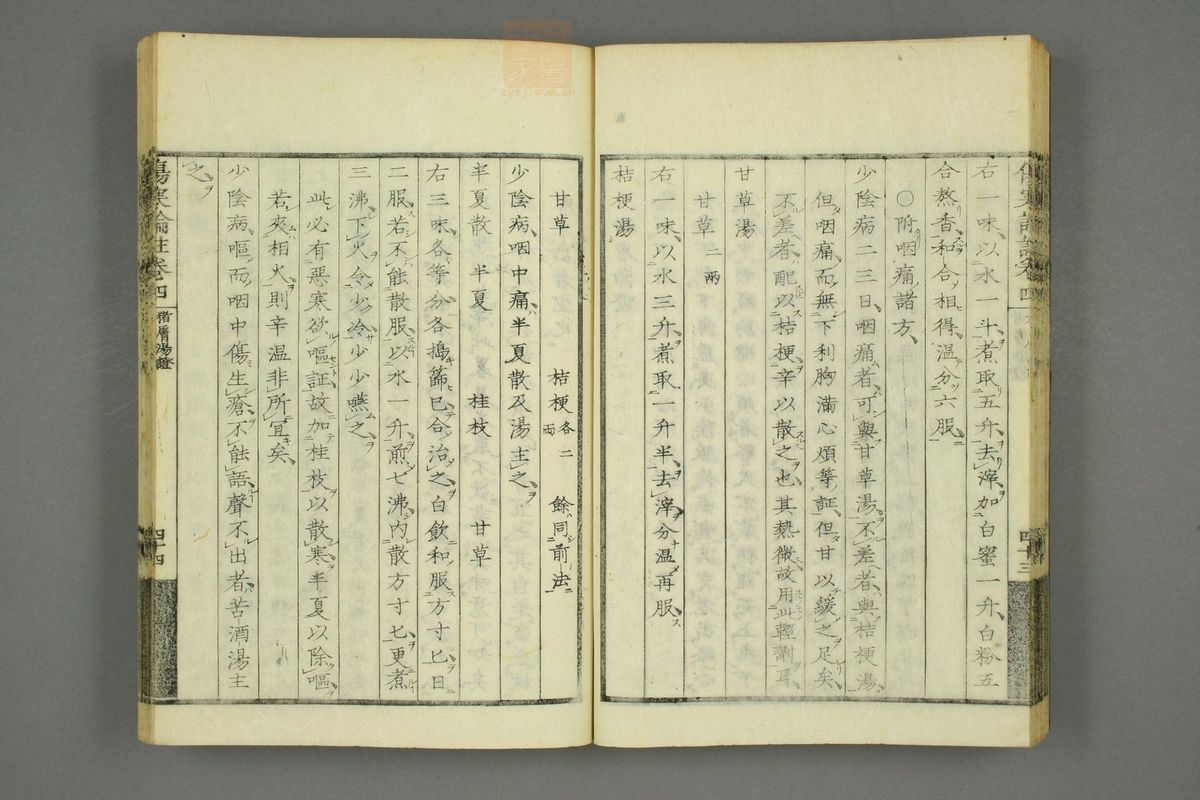 右一味以水一斗煮取五升去滓加白蜜一升白粉五
合熬香和合相得温分六服
〇附咽痛諸方
少陰病二三日咽痛者可與甘草湯不差者與桔梗湯
但咽痛而無下利胸満心煩等証但甘以緩之足矣
不差者配以桔梗辛以散之也其熱微故用此輕劑耳
甘草湯
甘草二兩
右一味以水三升煮取一升半去滓分温再服
桔梗湯
四十三
甘草 桔梗各二兩 餘同前法
少陰病咽中痛半夏散及湯主之
半夏散 半夏 桂枝 甘草
右三味各等分各搗篩已合治之白飲和服方寸匕日
二服若不能散服以水一升煎七沸内散方寸匕更煮
三沸下火令少冷少少嚥之
此必有惡寒欲嘔証故加桂枝以散寒半夏以除嘔
若夾相火則辛温非所宜矣
少陰病嘔而咽中傷生瘡不能語聲不出者苦酒湯主
之
傷寒論註卷四 猪膚湯證 四十四
zysj.com.cn